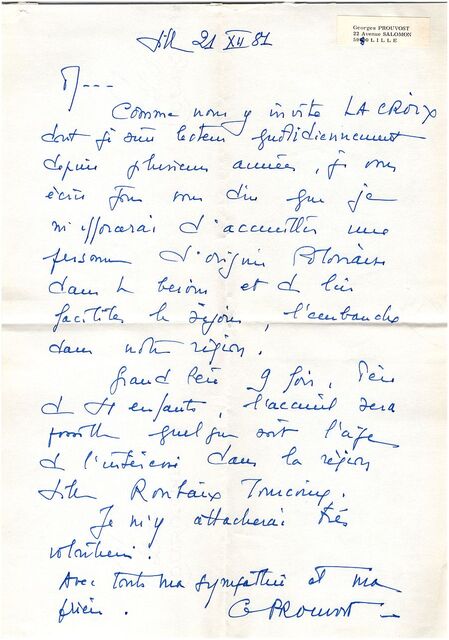 Georges PROUVOST
22 Avenue SALOMON
LILLE
Lille 21 XII 81
M---
Comme nous y invite LA CROIX
dont je suis lecteur quotidiennement
depuis plusieurs années, je vous
écris pour vous dire que je
m'efforcerai d'accueillir une
personne d'origine Polonaise
dans le besoin et de lui
faciliter le séjour, l'embauche
dans notre région.
Grand Père 9 fois, Père
de enfants, l'accueil sera
possible quelque soit l'âge
de l'intéressé dans la région
Lille Roubaix Tourcoing.
Je m'y attacherai très
volontiers.
Avec toute ma sympathie et ma
prière.
G PROUVOST